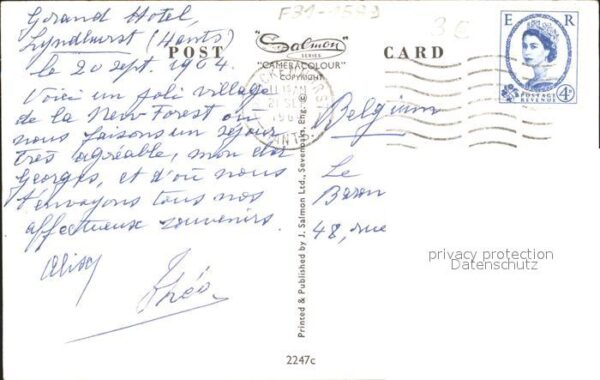 Grand Hotel,
Lyndhurst (Hants)
le 20 Sept. 1964.
Voici un joli village
de la New Forest où
nous faisons un séjour
très agréable, mon cher
Georges, et d'où nous
t'envoyons tous nos
affectueux souvenirs.
Théo
F31-1593
3€
POST
Salmon
SERIES
"CAMERACOLOUR"
COPYRIGHT
CARD
E R
POSTAGE
REVENUE
4D
Belgium
Le
Baron
48, rue
privacy protection
Datenschutz
Printed & Published by J. Salmon Ltd., Sevenoaks, Eng. ©
2247c